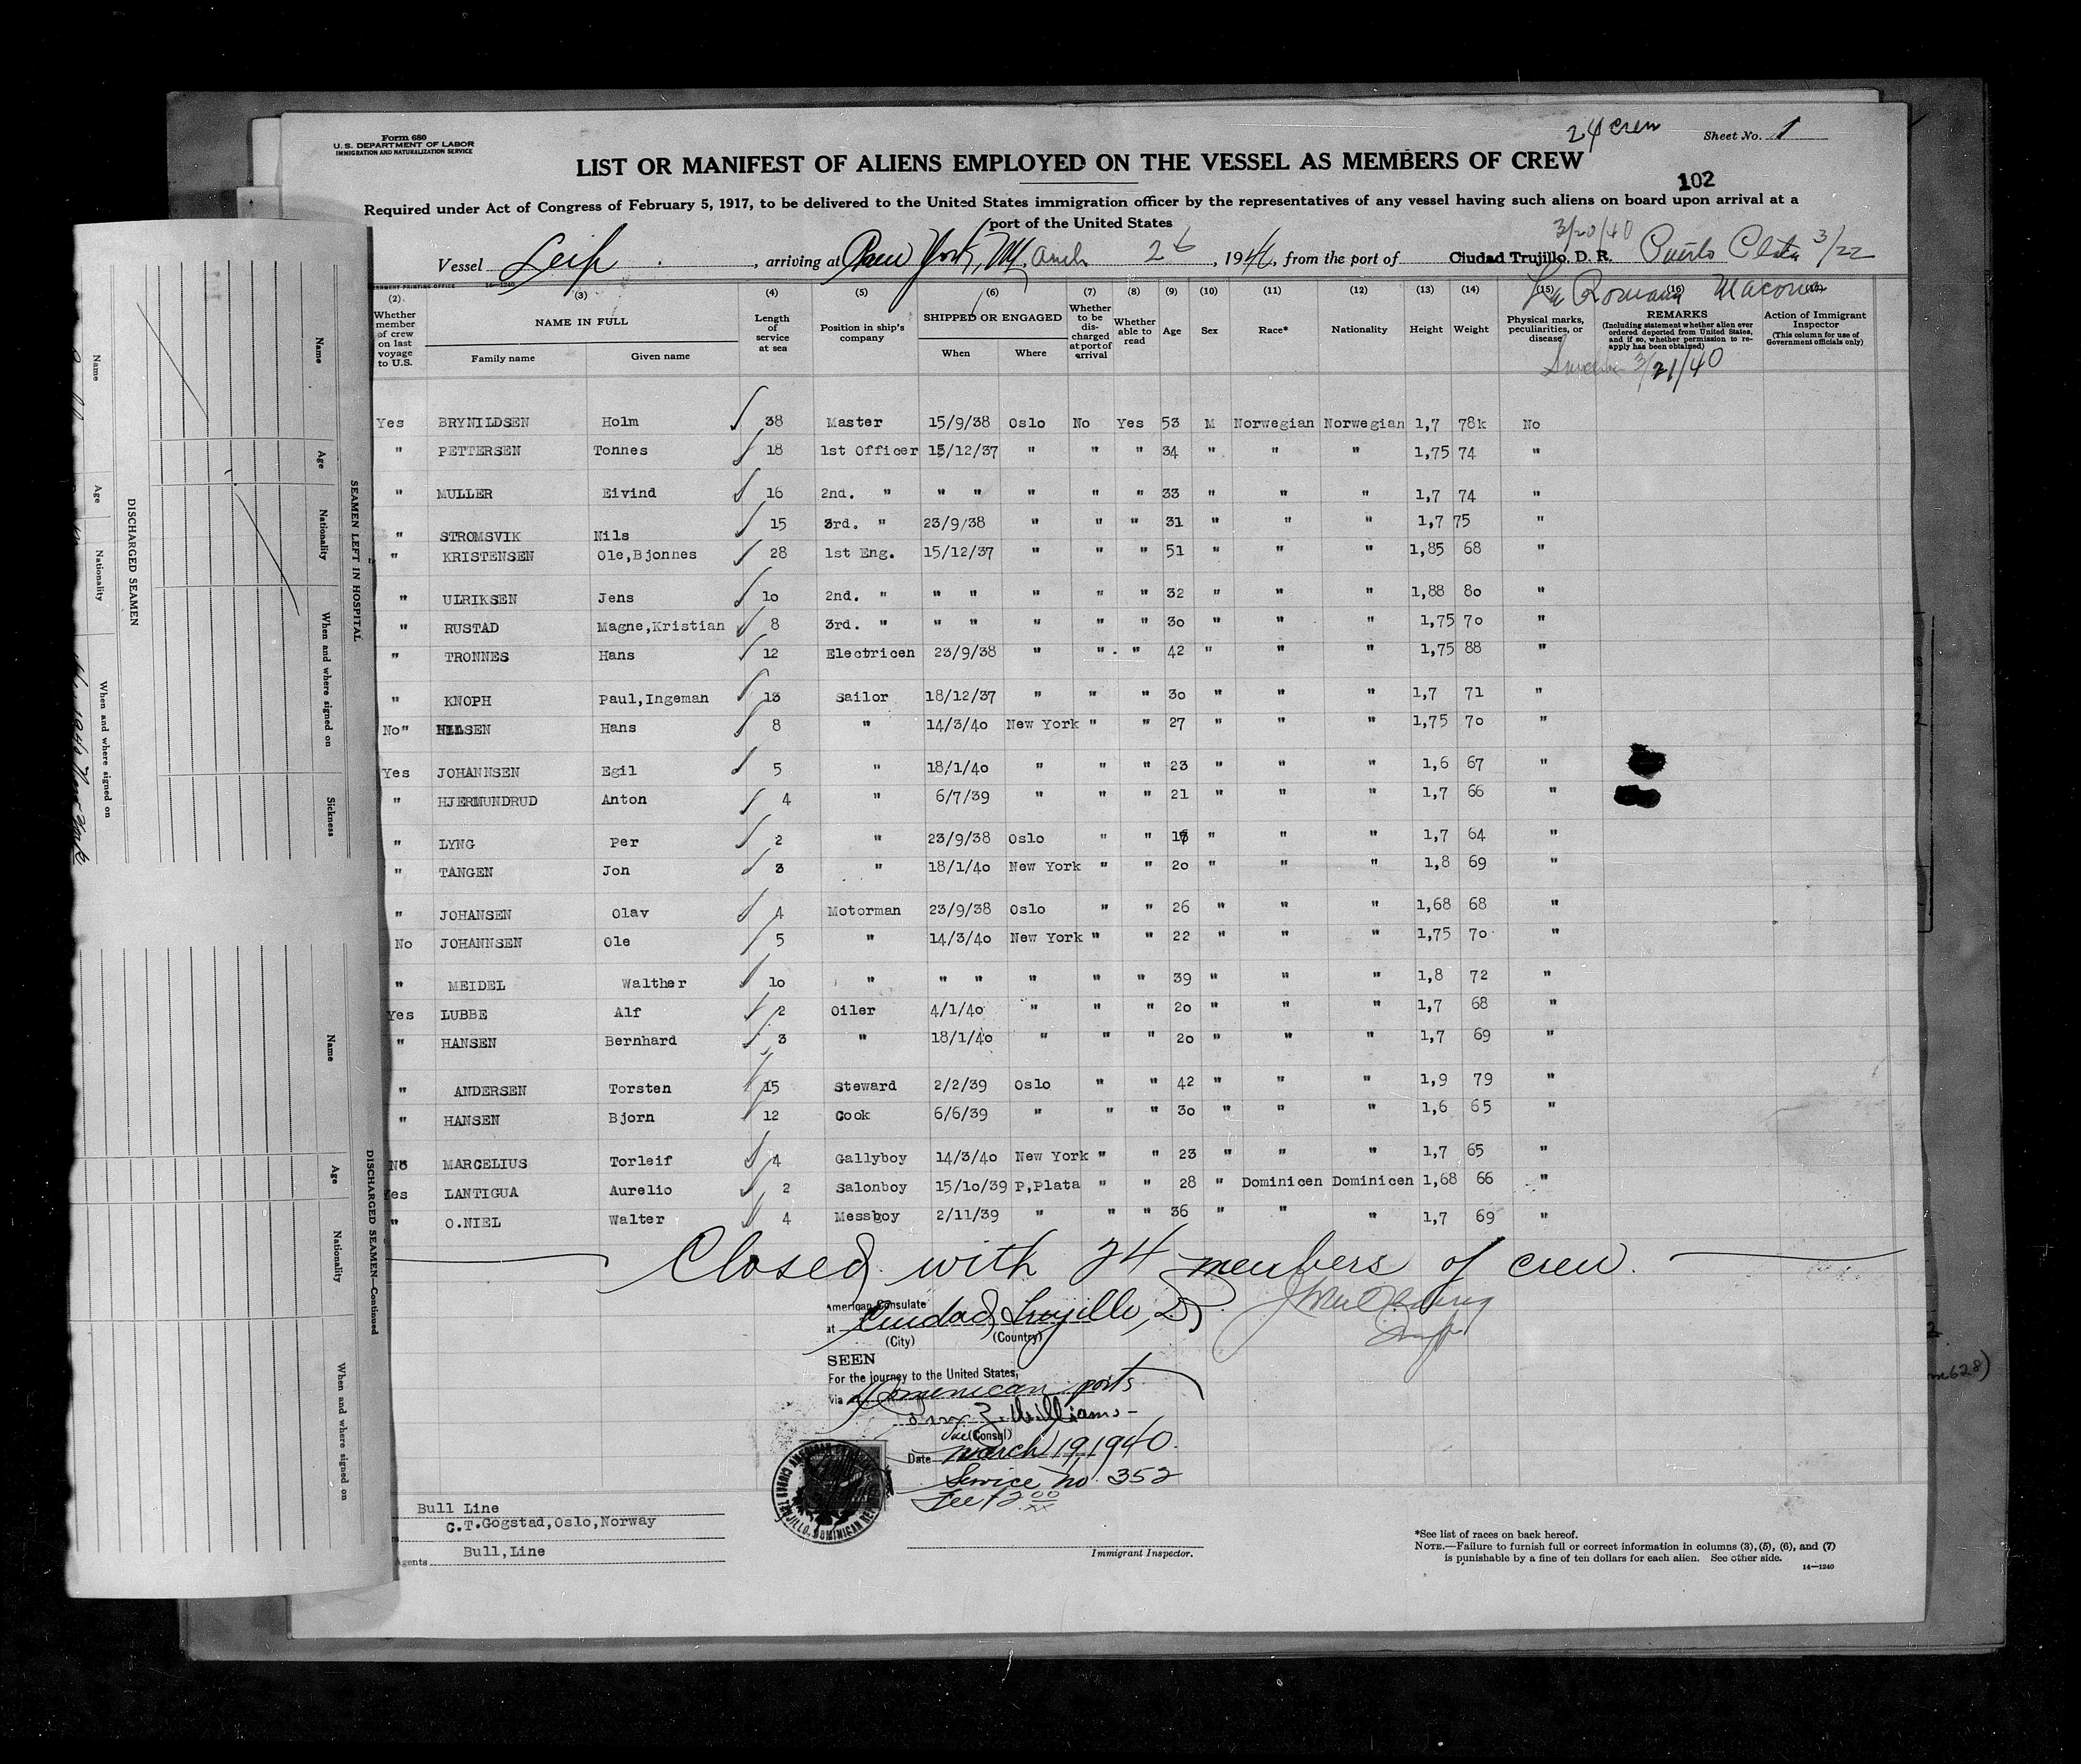 Form 680
U.S. DEPARTMENT OF LABOR
IMMIGRATION AND NATURALIZATION SERVICE
24 crew
Sheet No. 1
LIST OR MANIFEST OF ALIENS EMPLOYED ON THE VESSEL AS MEMBERS OF CREW
102
Required under Act of Congress of February 5, 1917, to be delivered to the United States immigration officer by the representatives of any vessel having such aliens on board upon arrival at a
port of the United States
3/20/40
Vessel Leif, arriving at New York, March 26, 1940, from the port of Ciudad Trujillo. D. R. Puerto Plata 3/22
La Romana Macoris
3/21/40
(2) (3) (4) (5) (6) (7) (8) (9) (10) (11) (12) (13) (14) (15) (16)
Whether member of crew on last voyage to U.S.
NAME IN FULL
Family name Given name
Length of service at sea
Position in ship's company
SHIPPED OR ENGAGED
When Where
Whether to be discharged at port of arrival
Whether able to read
Age Sex Race* Nationality Height Weight
Physical marks, peculiarities, or disease
REMARKS
(Including statement whether alien ever ordered deported from United States, and if so, whether permission to reapply has been obtained)
Action of Immigrant Inspector
(This column for use of Government officials only)
Yes BRYNILDSEN Holm 38 Master 15/9/38 Oslo No Yes 53 M Norwegian Norwegian 1,7 78k No
" PETTERSEN Tonnes 18 1st Officer 15/12/37 " " " 34 " " " 1,75 74 "
" MULLER Eivind 16 2nd. " " " " " " 33 " " " 1,7 74 "
" STROMSVIK Nils 15 3rd. " 23/9/38 " " " 31 " " " 1,7 75 "
" KRISTENSEN Ole,Bjonnes 28 1st Eng. 15/12/37 " " " 51 " " " 1,85 68 "
" ULRIKSEN Jens 10 2nd. " " " " " " 32 " " " 1,88 80 "
" RUSTAD Magne,Kristian 8 3rd. " " " " " " 30 " " " 1,75 70 "
" TRONNES Hans 12 Electricen 23/9/38 " " " 42 " " " 1,75 88 "
" KNOPH Paul,Ingeman 13 Sailor 18/12/37 " " " 30 " " " 1,7 71 "
No" NILSEN Hans 8 " 14/3/40 New York " " 27 " " " 1,75 70 "
Yes JOHANNSEN Egil 5 " 18/1/40 " " " 23 " " " 1,6 67 "
" HJERMUNDRUD Anton 4 " 6/7/39 " " " 21 " " " 1,7 66 "
" LYNG Per 2 " 23/9/38 Oslo " " " " " 1,7 64 "
" TANGEN Jon 3 " 18/1/40 New York " " 20 " " " 1,8 69 "
" JOHANSEN Olav 4 Motorman 23/9/38 Oslo " " 26 " " " 1,68 68 "
No JOHANNSEN Ole 5 " 14/3/40 New York " " 22 " " " 1,75 70 "
" MEIDEL Walther 10 " " " " " " 39 " " " 1,8 72 "
Yes LUBBE Alf 2 Oiler 4/1/40 " " " 20 " " " 1,7 68 "
" HANSEN Bernhard 3 " 18/1/40 " " " 20 " " " 1,7 69 "
" ANDERSEN Torsten 15 Steward 2/2/39 Oslo " " 42 " " " 1,9 79 "
" HANSEN Bjorn 12 Cook 6/6/39 " " " 30 " " " 1,6 65 "
No MARCELIUS Torleif 4 Gallyboy 14/3/40 New York " " 23 " " " 1,7 65 "
Yes LANTIGUA Aurelio 2 Salonboy 15/10/39 P,Plata " " 28 " Dominicen Dominicen 1,68 66 "
" O.NIEL Walter 4 Messboy 2/11/39 " " " 36 " " " 1,7 69 "
Closed with 24 members of crew.
American Consulate
at Ciudad Trujillo, D.R.
(City) (Country)
SEEN
For the journey to the United States,
via Dominican ports
Williams
Vice (Consul)
Date March 19, 1940.
Service No. 352
Fee $2.00
Bull Line
C.T.Gogstad,Oslo,Norway
Agents Bull,Line
Immigrant Inspector.
*See list of races on back hereof.
NOTE.—Failure to furnish full or correct information in columns (3), (5), (6), and (7)
is punishable by a fine of ten dollars for each alien. See other side.
14—1240
SEAMEN LEFT IN HOSPITAL
Name Age Nationality When and where signed on Sickness
DISCHARGED SEAMEN
Name Age Nationality When and where signed on
DISCHARGED SEAMEN—Continued
Name Age Nationality When and where signed on